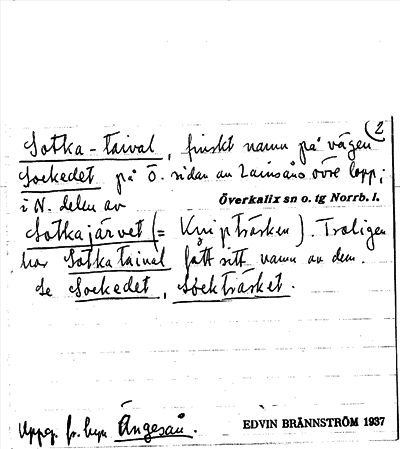 2
Sotka-taival, finskt namn på vägen
Sockedet på ö. sidan av Lainsåns övre lopp;
i N. delen av Överkalix sn o. tg Norrb. l.
Sotkajärvet (= Knipträsken). Troligen
har Sotkataival fått sitt namn av dem.
Se Sockedet, Söckträsket.
Uppg. fr. byn Ängesån.
EDVIN BRÄNNSTRÖM 1937